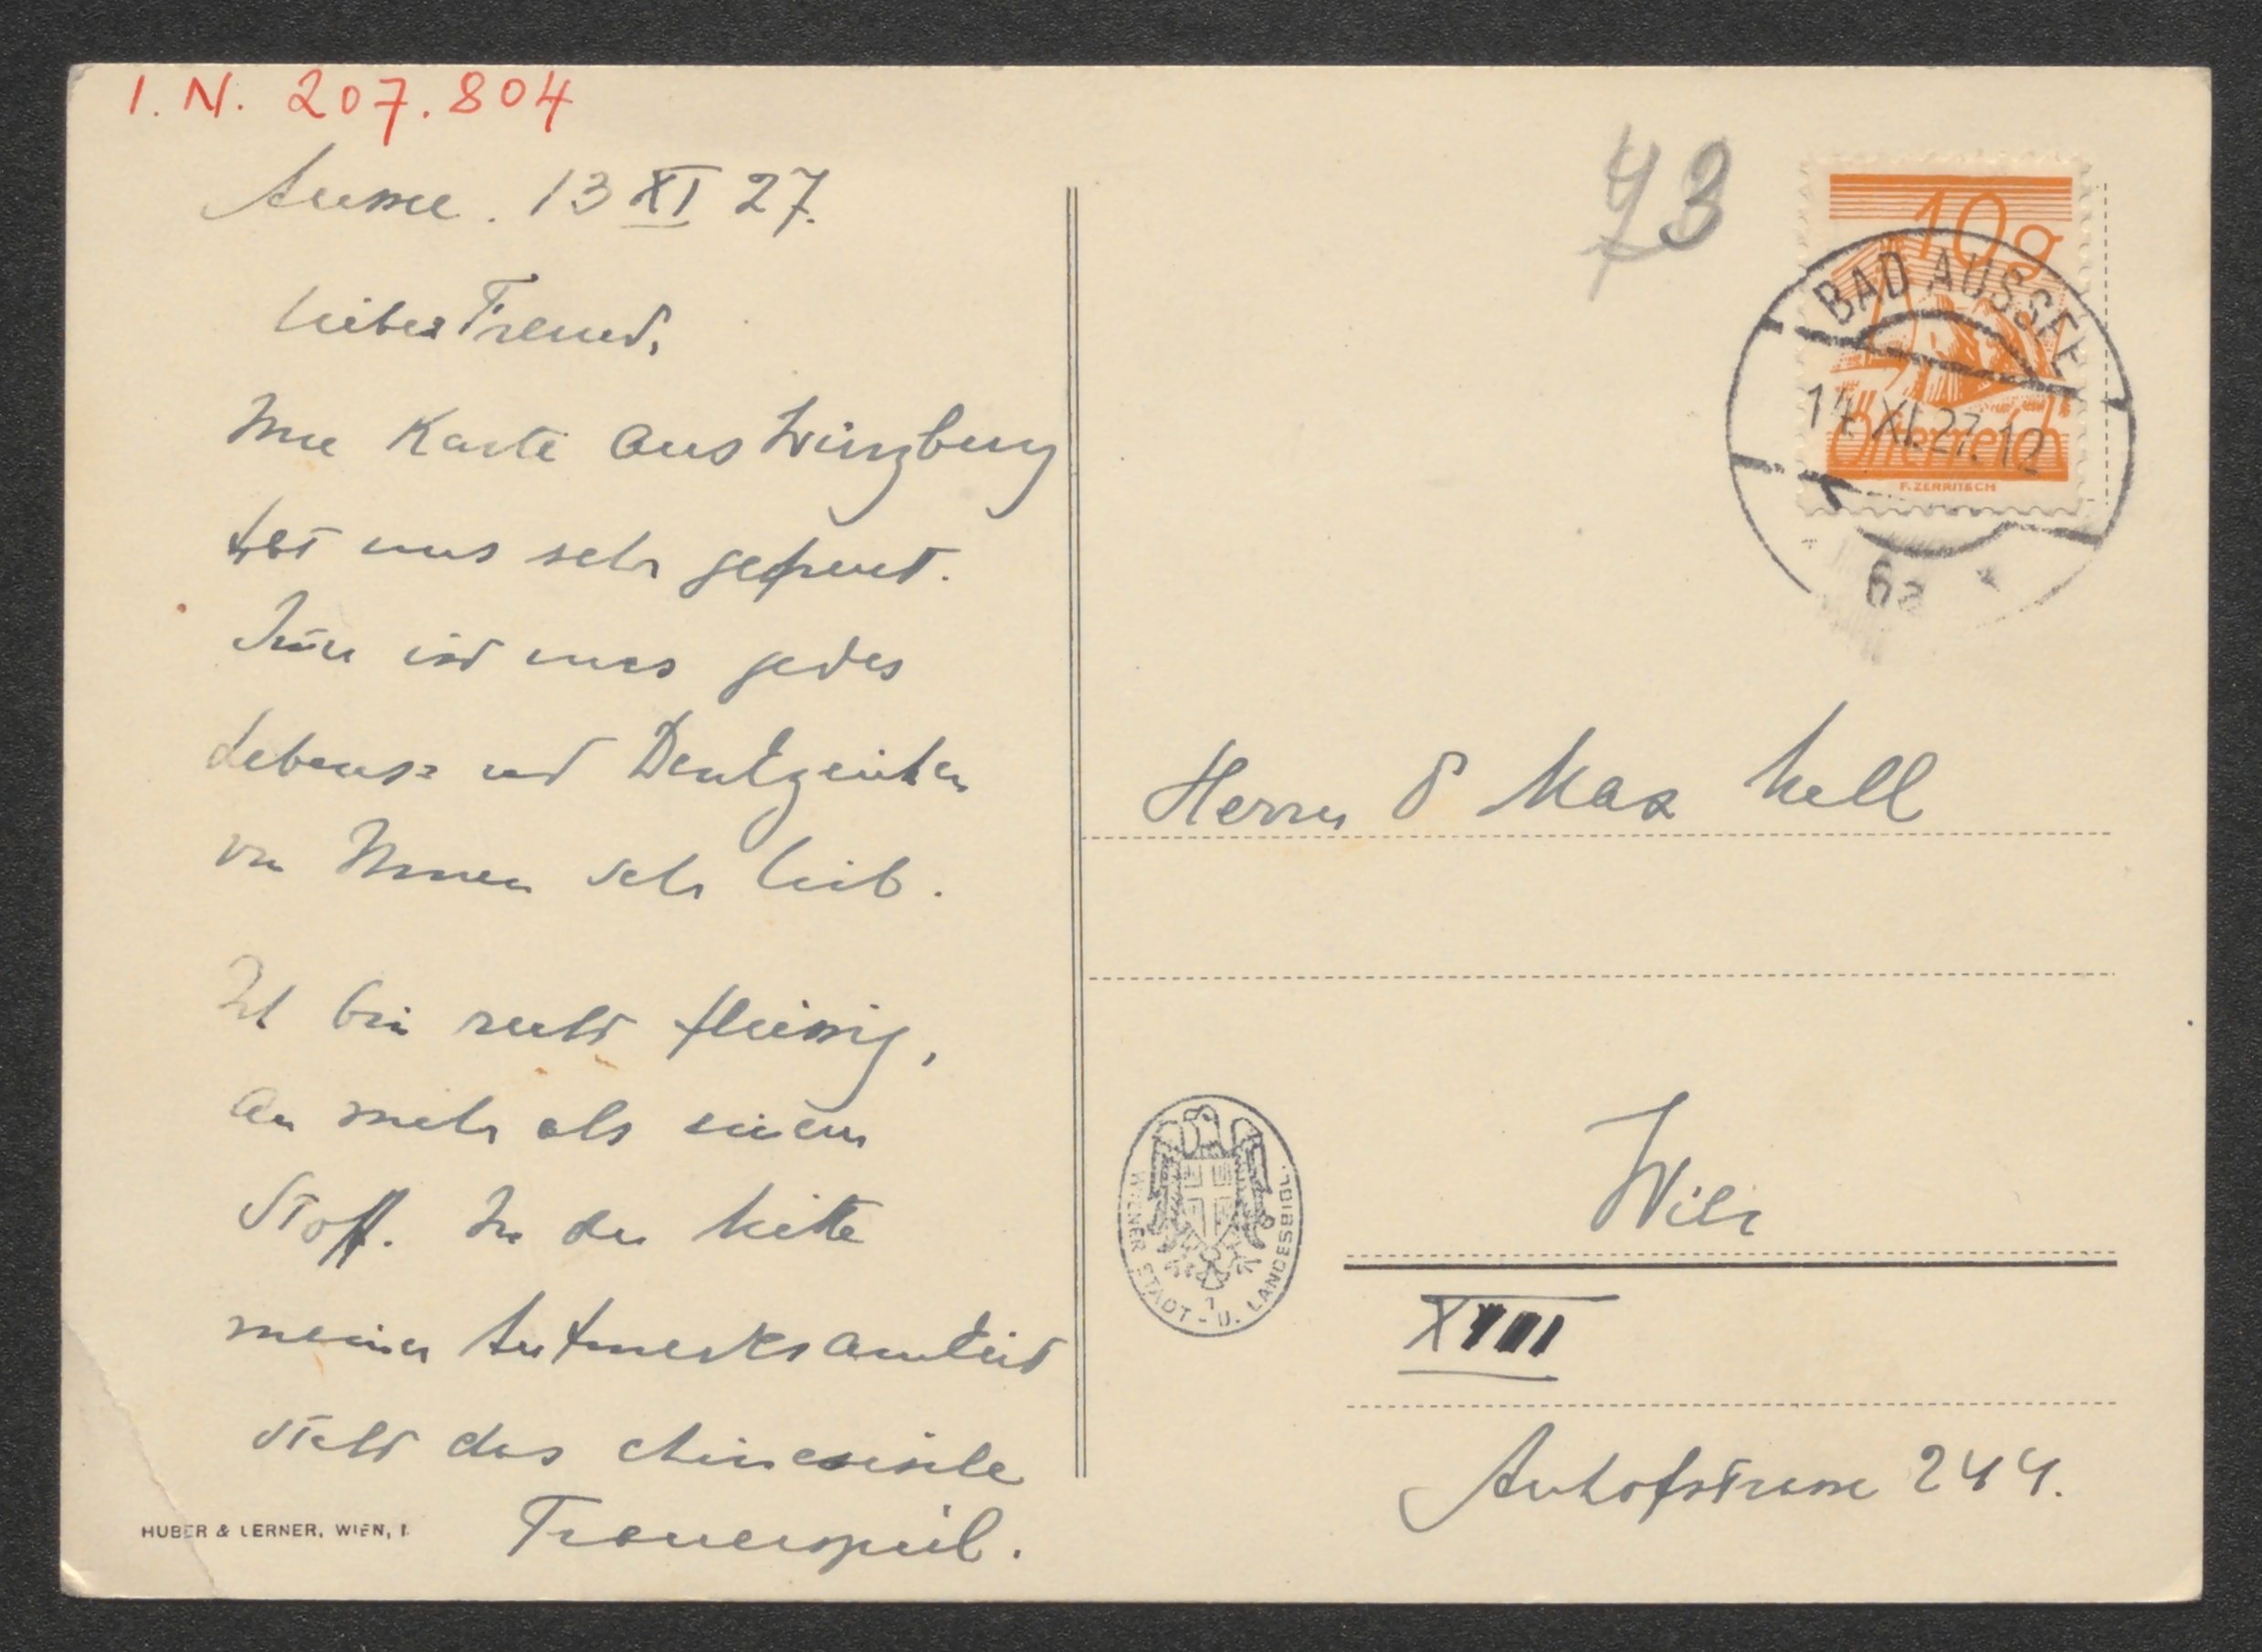 I. N. 207.804
Aussee. 13 XI 27.
lieber Freund,
Ihre Karte aus Würzburg
hat uns sehr gefreut.
Immer ist uns jedes
Lebens- und Denkzeichen
von Ihnen sehr lieb.
Ich bin recht fleissig,
an mehr als einem
Stoff. In der Mitte
meiner Aufmerksamkeit
steht das chinesische
Trauerspiel.
HUBER & LERNER, WIEN, I.
73
10g
Österreich
F. ZERRITSCH
BAD AUSSEE
14.XI.27.12
6a
Herrn D Max Mell
Wien
XIII
Auhofstrasse 244.
WIENER STADT- U. LANDESBIBL.